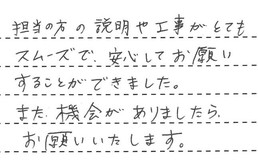 担当の方の説明や工事がとても
スムーズで、安心してお願い
することができました。
また機会がありましたら、
お願いいたします。